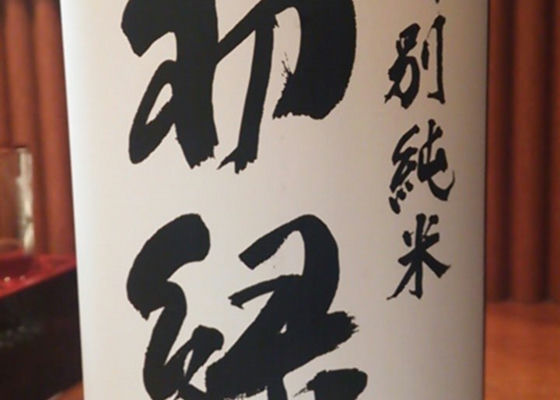 別純米
初緑